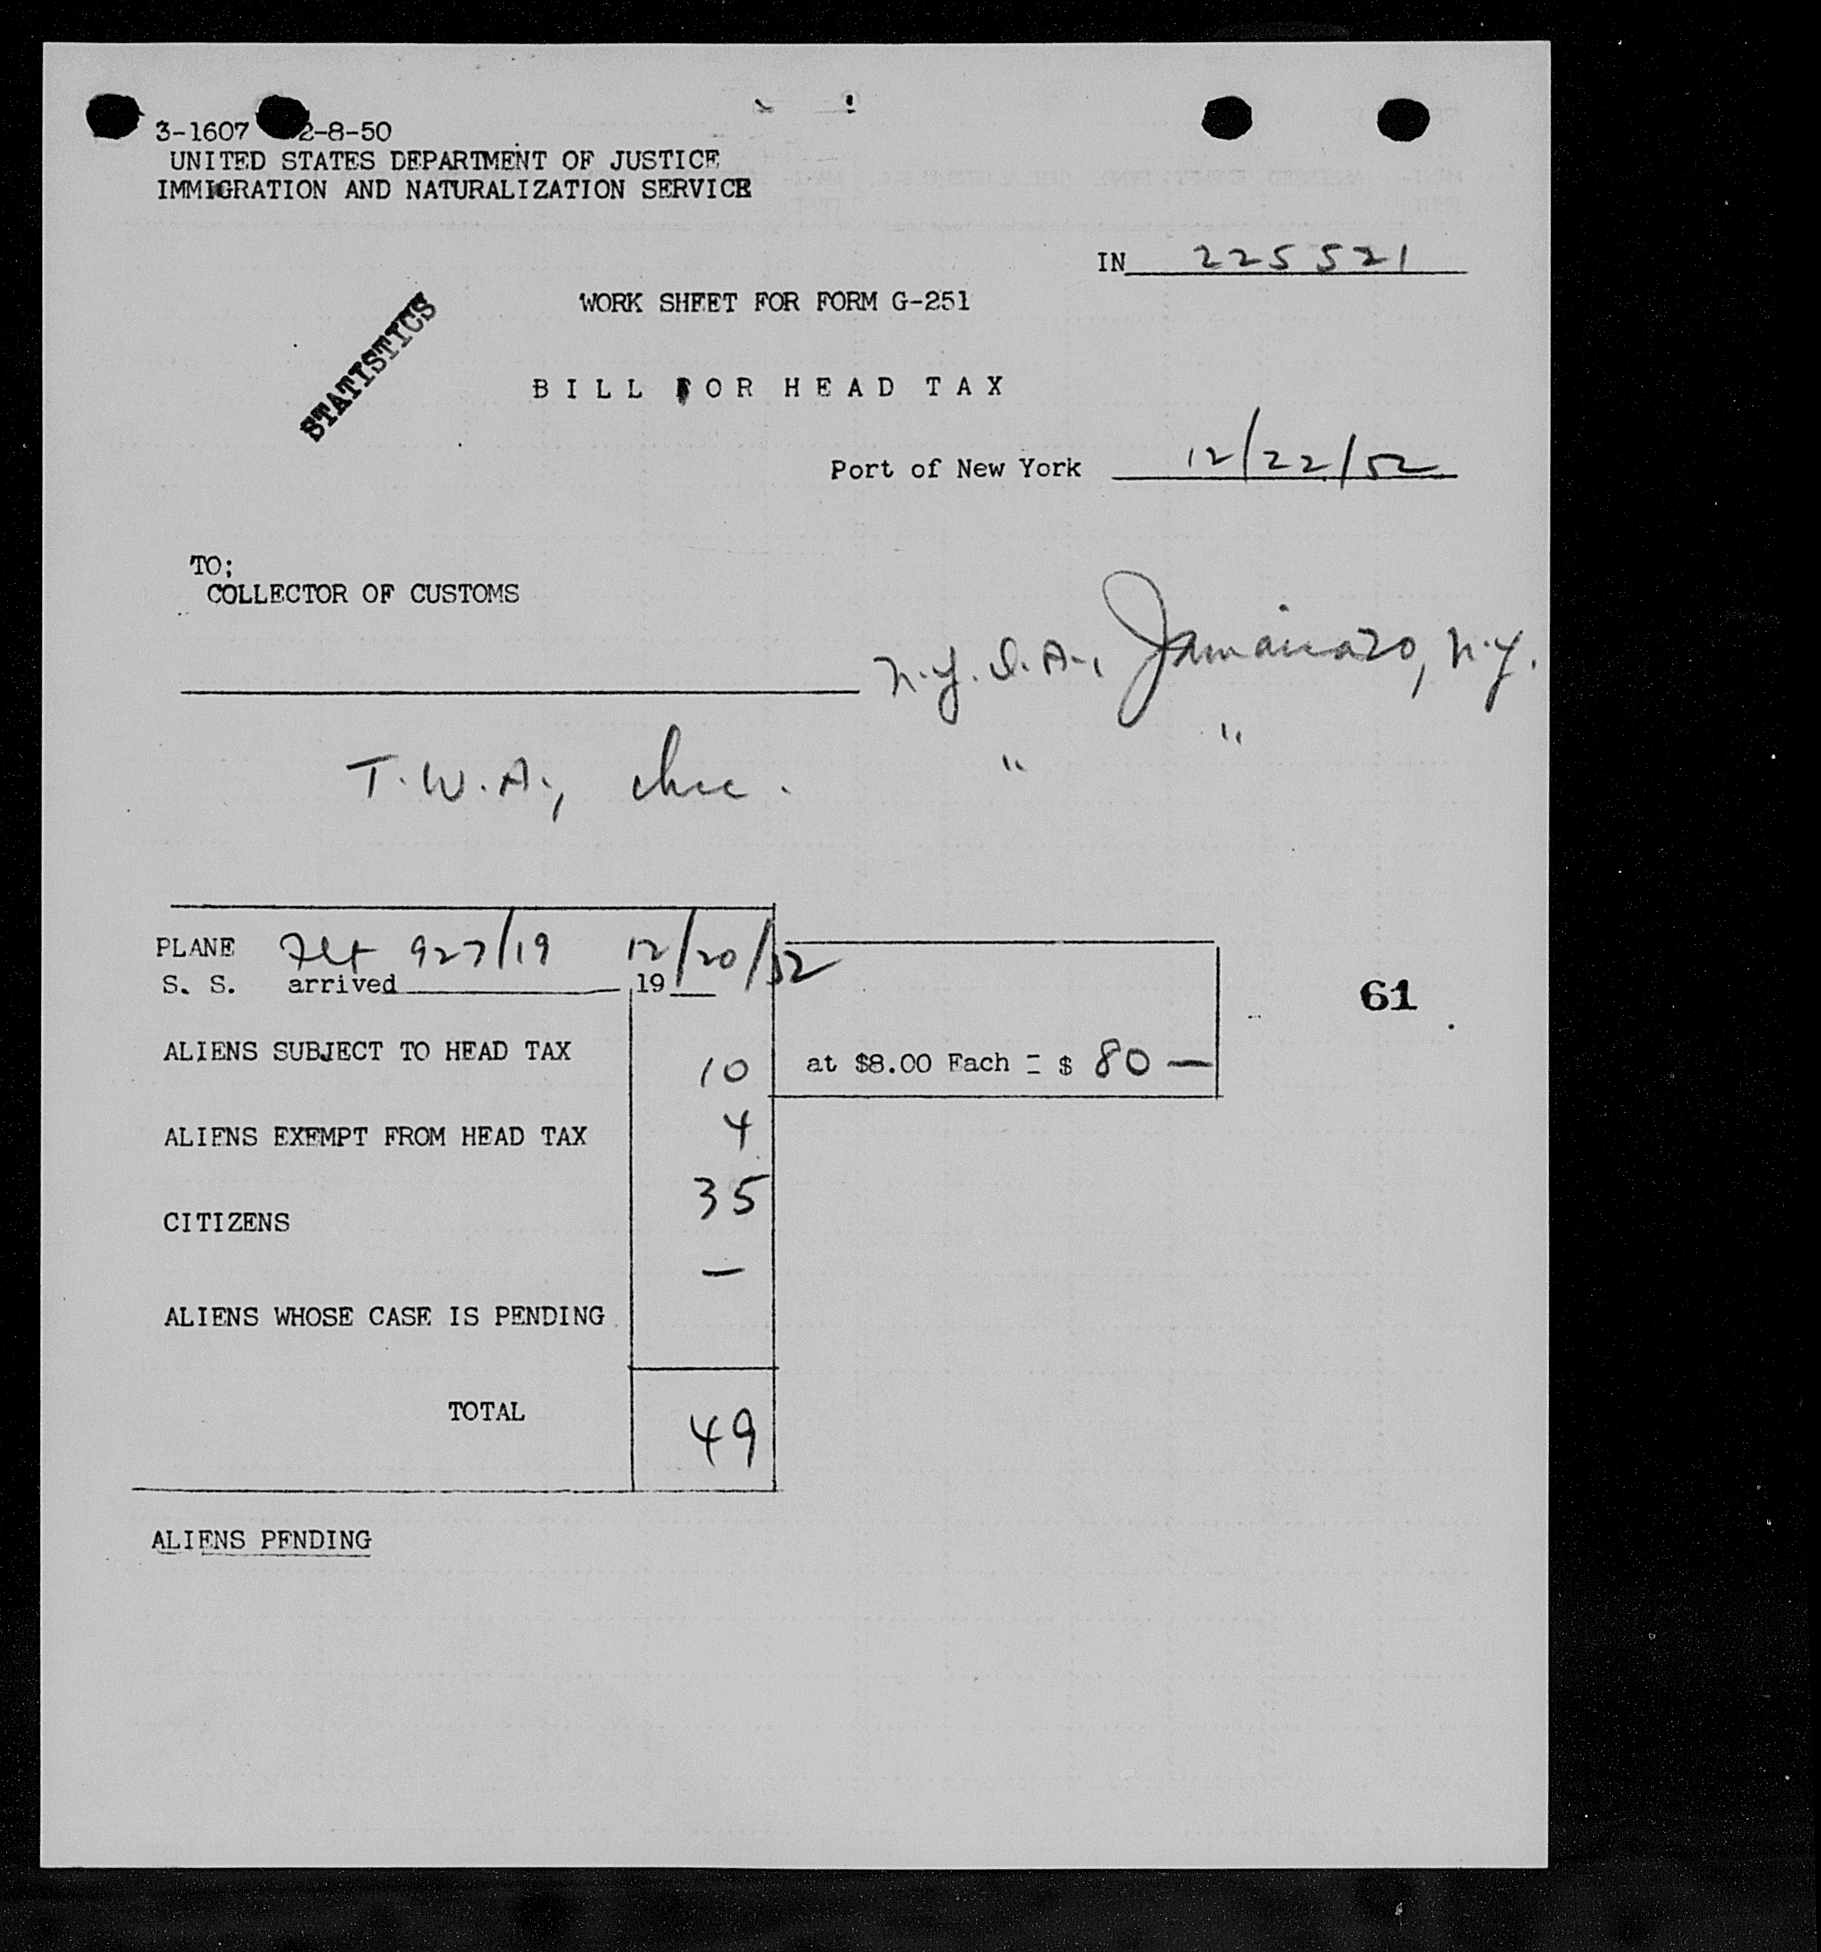 3-1607 2-8-50
UNITED STATES DEPARTMENT OF JUSTICE
IMMIGRATION AND NATURALIZATION SERVICE
IN 225521
WORK SHEET FOR FORM G-251
STATISTICS
BILL FOR HEAD TAX
Port of New York 12/22/52
TO;
COLLECTOR OF CUSTOMS
N.Y.I.A., Jamaica 30, N.Y.
T.W.A., Inc. " "
PLANE Flt 927/19 12/20/52
S. S. arrived , 19
61
ALIENS SUBJECT TO HEAD TAX 10 at $8.00 Each = $ 80 —
ALIENS EXEMPT FROM HEAD TAX 4
CITIZENS 35
—
ALIENS WHOSE CASE IS PENDING
TOTAL 49
ALIENS PENDING